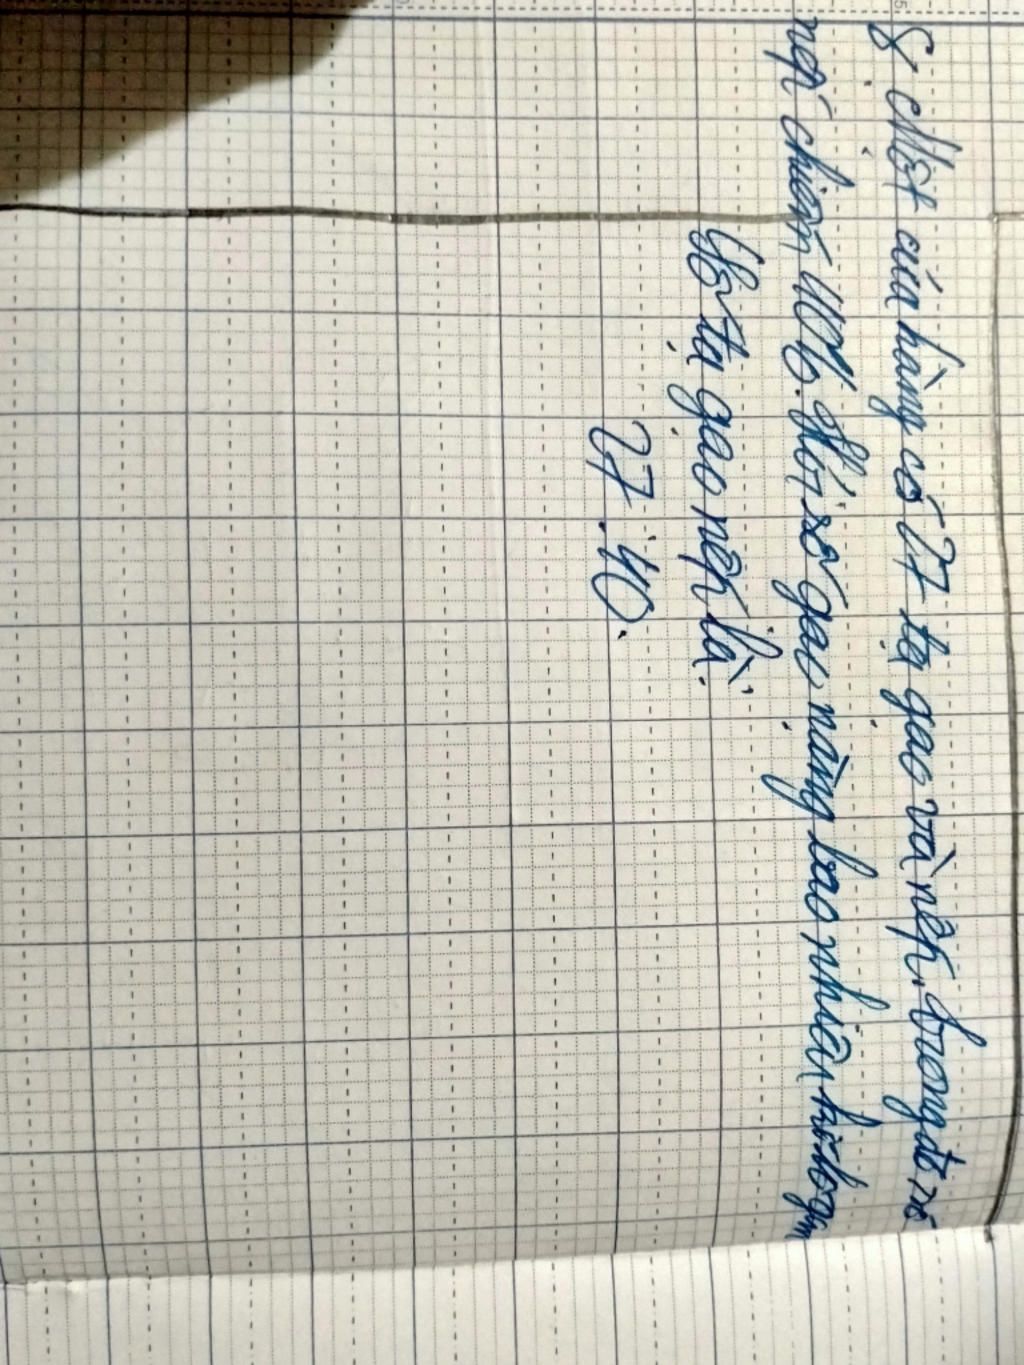 8. Một cửa hàng có 27 tạ gạo và nếp, trong đó số
nếp chiếm 40%. Hỏi số gạo nặng bao nhiêu kilôgam
Số tạ gạo nếp là:
27 . 40.